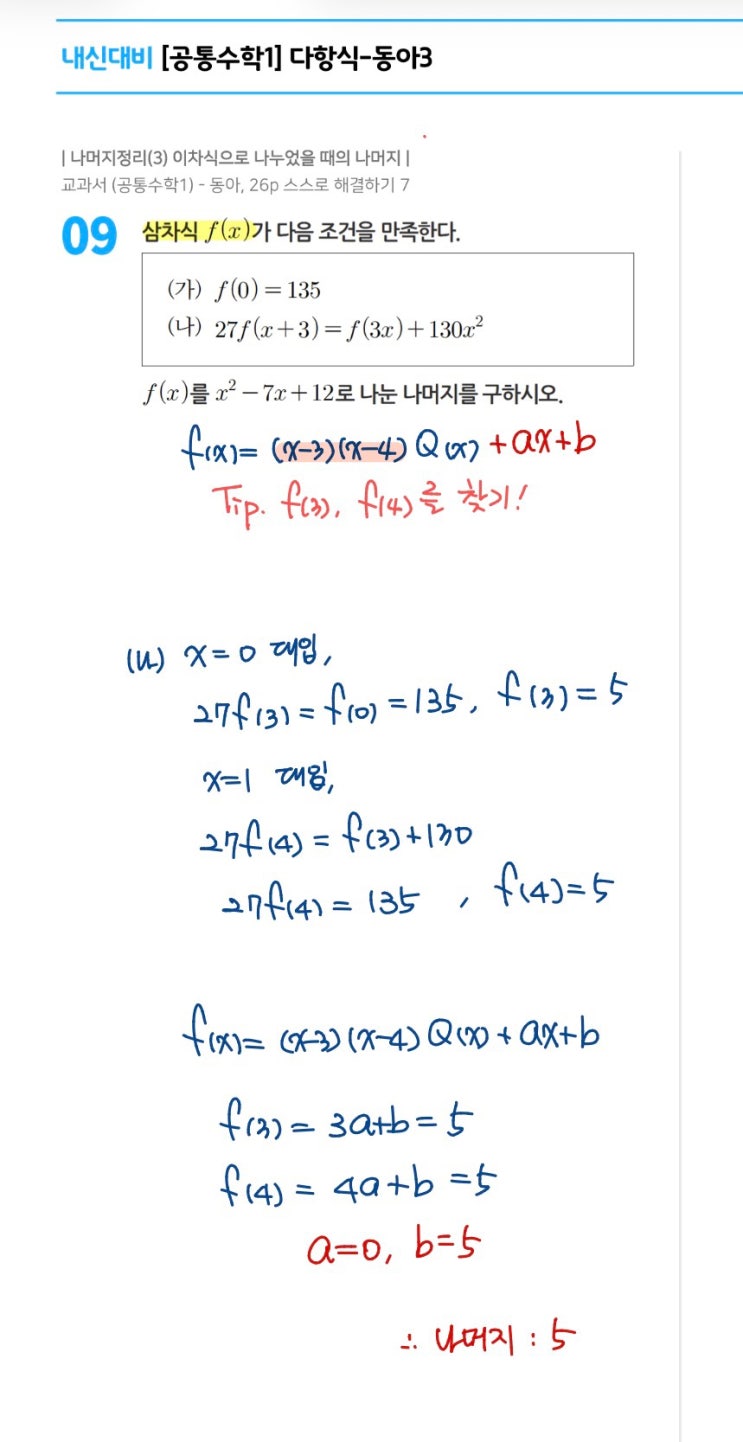 내신대비 [공통수학1] 다항식-동아3
| 나머지정리(3) 이차식으로 나누었을 때의 나머지 |
교과서 (공통수학1) - 동아, 26p 스스로 해결하기 7
09 삼차식 f(x)가 다음 조건을 만족한다.
(가) f(0)=135
(나) 27f(x+3)=f(3x)+130x²
f(x)를 x²-7x+12로 나눈 나머지를 구하시오.
f(x)= (x-3)(x-4) Q(x) +ax+b
Tip. f(3), f(4)를 찾기!
(나) x=0 대입,
27f(3)=f(0)=135, f(3)=5
x=1 대입,
27f(4)=f(3)+130
27f(4)=135 , f(4)=5
f(x)= (x-3)(x-4) Q(x)+ax+b
f(3)=3a+b=5
f(4)=4a+b=5
a=0, b=5
∴ 나머지 : 5